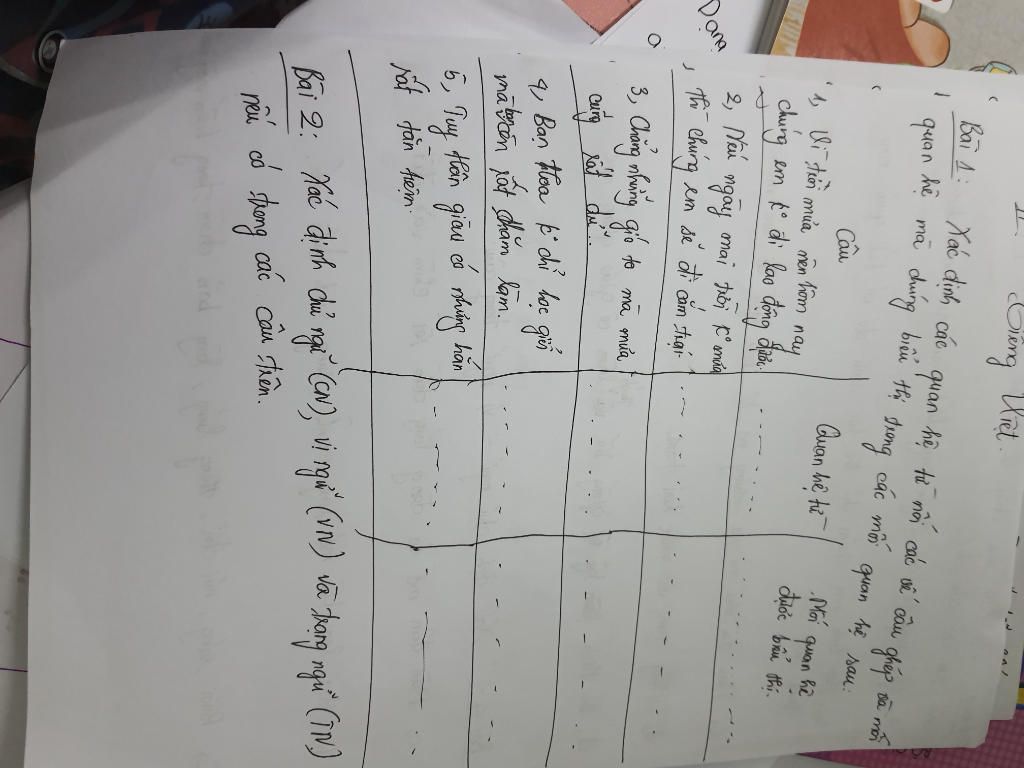 II. Tiếng Việt.
Bài 1: Xác định các quan hệ từ nối các vế câu ghép và mối
quan hệ mà chúng biểu thị trong các mối quan hệ sau:
Câu
Quan hệ từ
Mối quan hệ
được biểu thị.
1, Vì trời mưa nên hôm nay
chúng em k° đi lao động được.
2, Nếu ngày mai trời k° mưa
thì chúng em sẽ đi cắm trại.
3, Chẳng những gió to mà mưa
cũng rất dữ.
4, Bạn Hoa k° chỉ học giỏi
mà bạn còn rất chăm làm.
5, Tuy Hân giàu có nhưng hắn
rất tằn tiện.
Bài 2: Xác định chủ ngữ (CN), vị ngữ (VN) và trạng ngữ (TN)
nếu có trong các câu trên.
Dạng